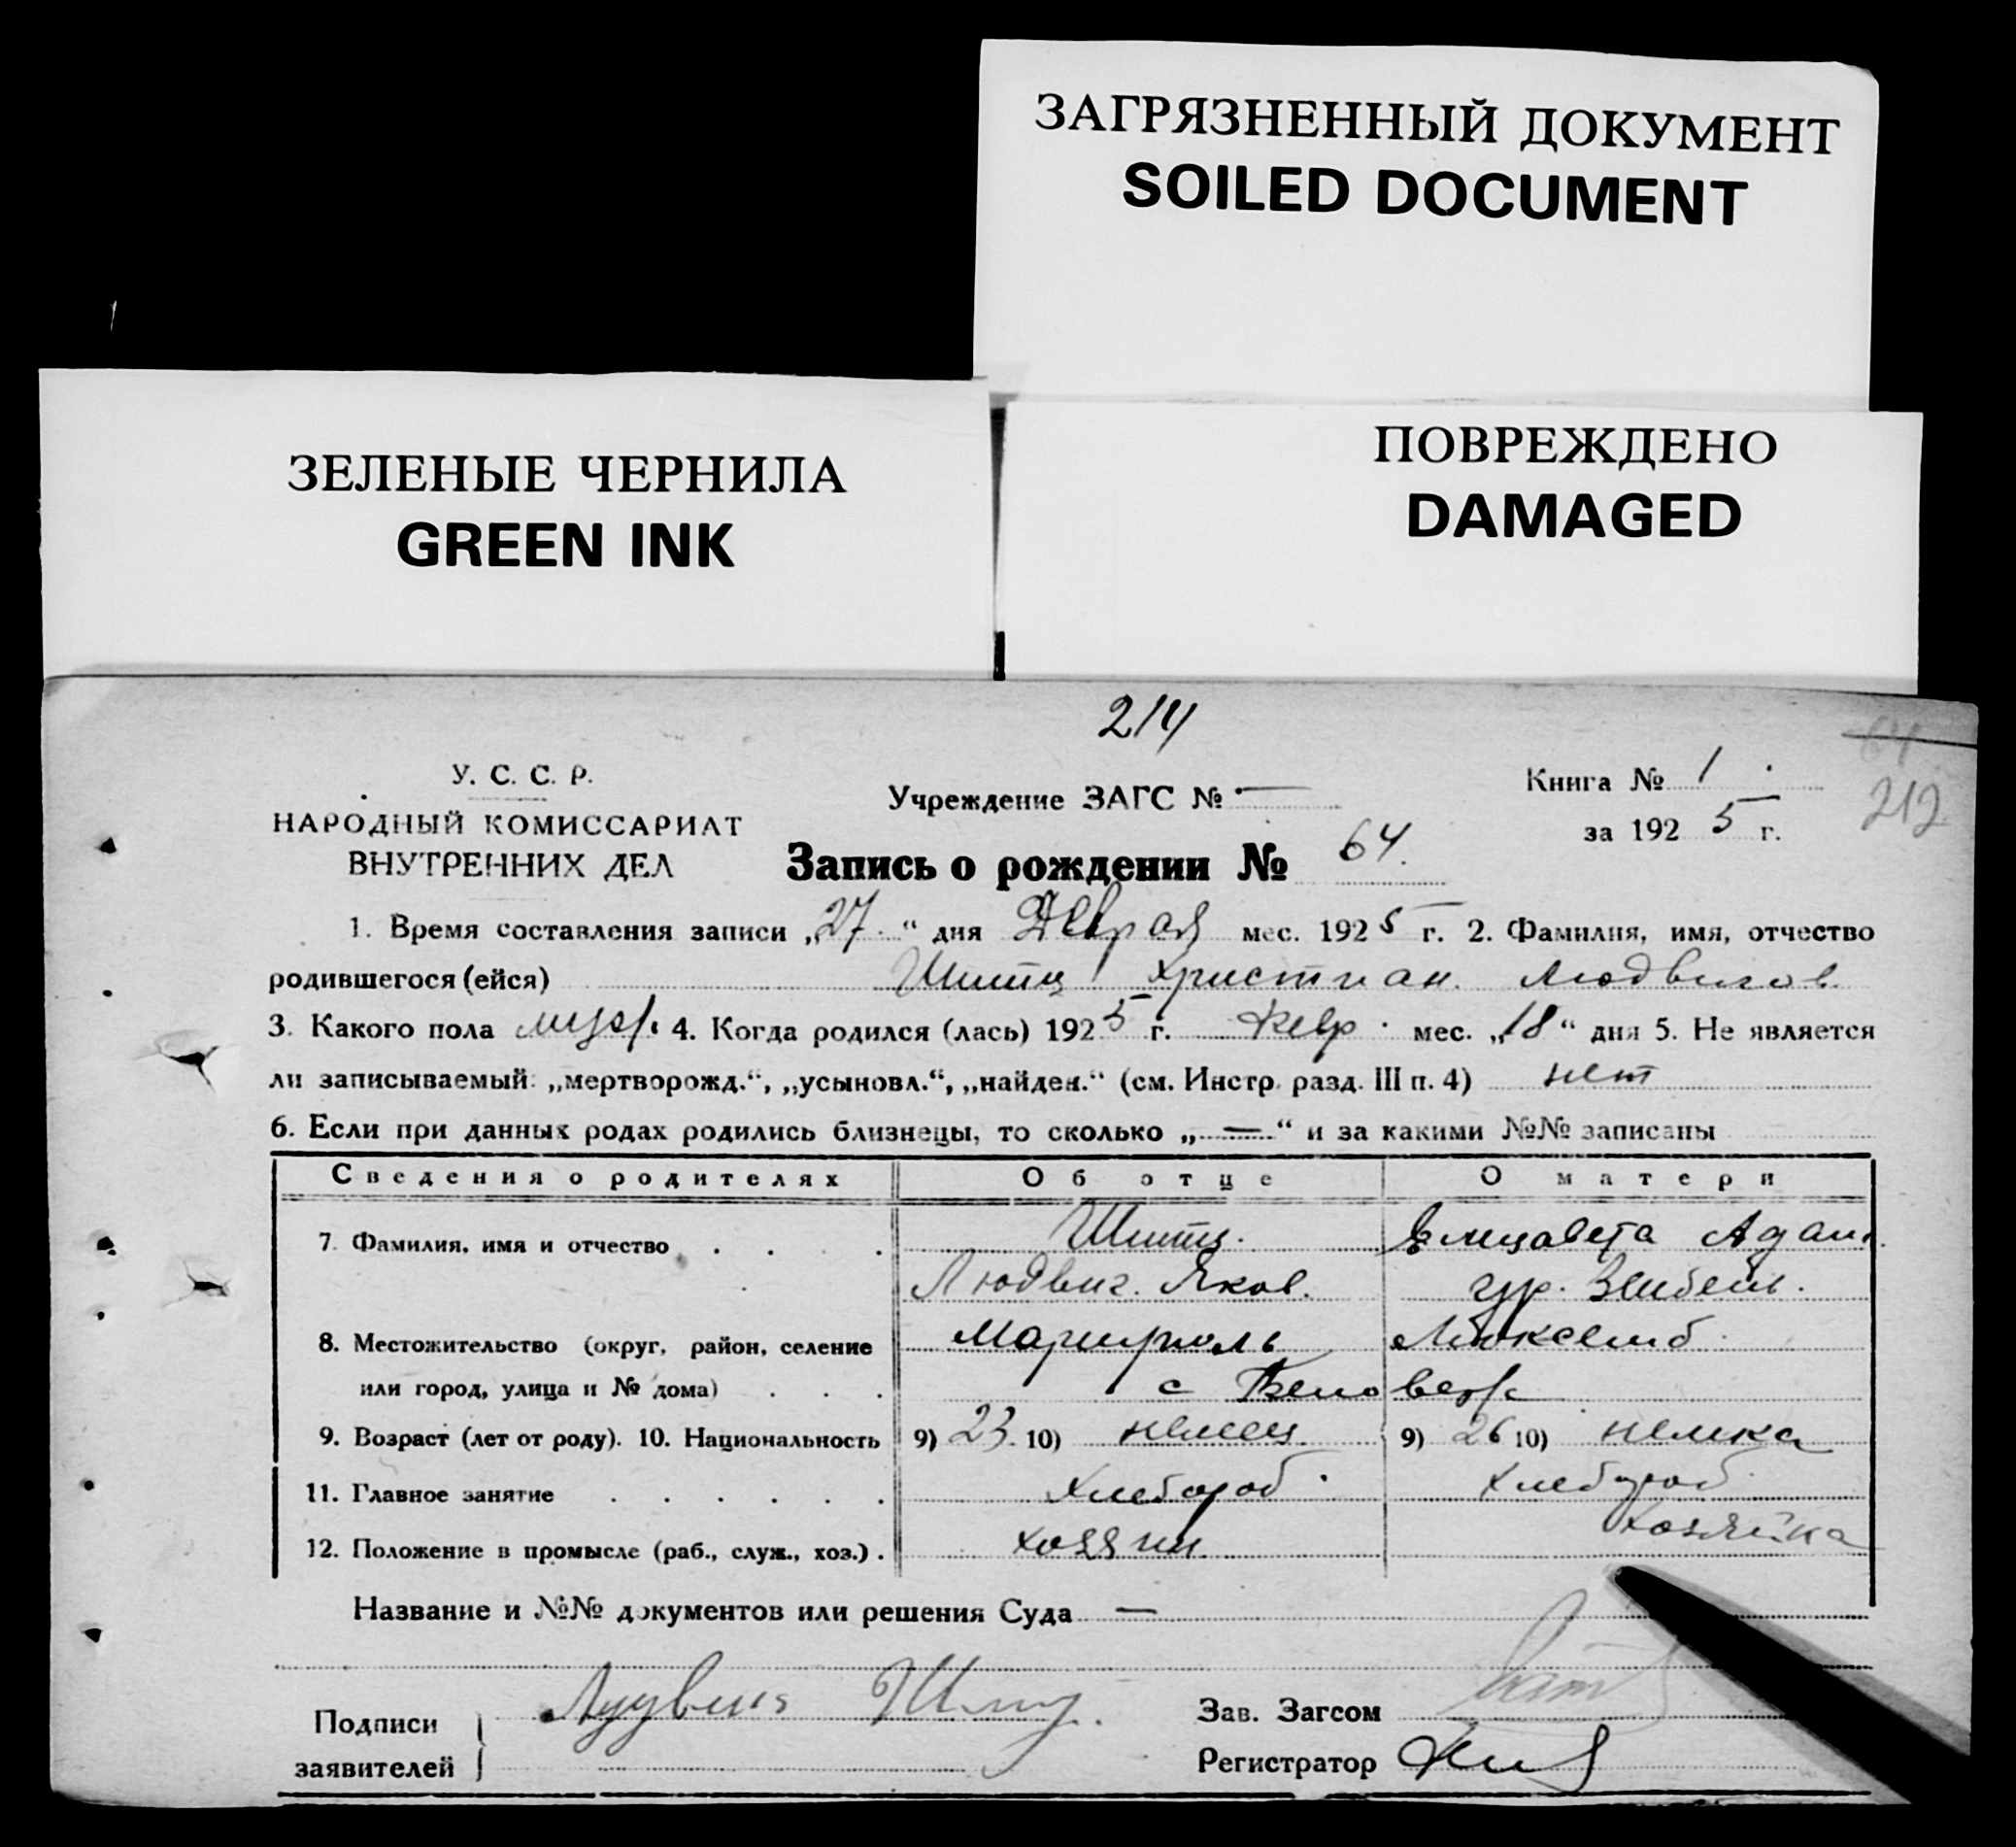 ЗАГРЯЗНЕННЫЙ ДОКУМЕНТ
SOILED DOCUMENT
ЗЕЛЕНЫЕ ЧЕРНИЛА
GREEN INK
ПОВРЕЖДЕНО
DAMAGED
214
64
212
У. С. С. Р.
НАРОДНЫЙ КОМИССАРИАТ
ВНУТРЕННИХ ДЕЛ
Учреждение ЗАГС № —
Книга № 1
за 1925 г.
Запись о рождении № 64.
1. Время составления записи „27“ дня Февраля мес. 1925 г. 2. Фамилия, имя, отчество
родившегося (ейся) Шитц Христиан. Людвигов.
3. Какого пола муж. 4. Когда родился (лась) 1925 г. Февр. мес. „18“ дня 5. Не является
ли записываемый: „мертворожд.“, „усыновл.“, „найден.“ (см. Инстр. разд. III п. 4) нет
6. Если при данных родах родились близнецы, то сколько „—“ и за какими №№ записаны
Сведения о родителях Об отце О матери
7. Фамилия, имя и отчество Шитц. Елизавета Адам.
Людвиг. Яков. ур.
8. Местожительство (округ, район, селение Мариуполь Люксемб.
или город, улица и № дома) с Беловеж
9. Возраст (лет от роду). 10. Национальность 9) 23. 10) немец 9) 26 10) немка
11. Главное занятие Хлебороб Хлебороб
12. Положение в промысле (раб., служ., хоз.) хозяин Хозяйка
Название и №№ документов или решения Суда —
Подписи заявителей
Зав. Загсом
Регистратор